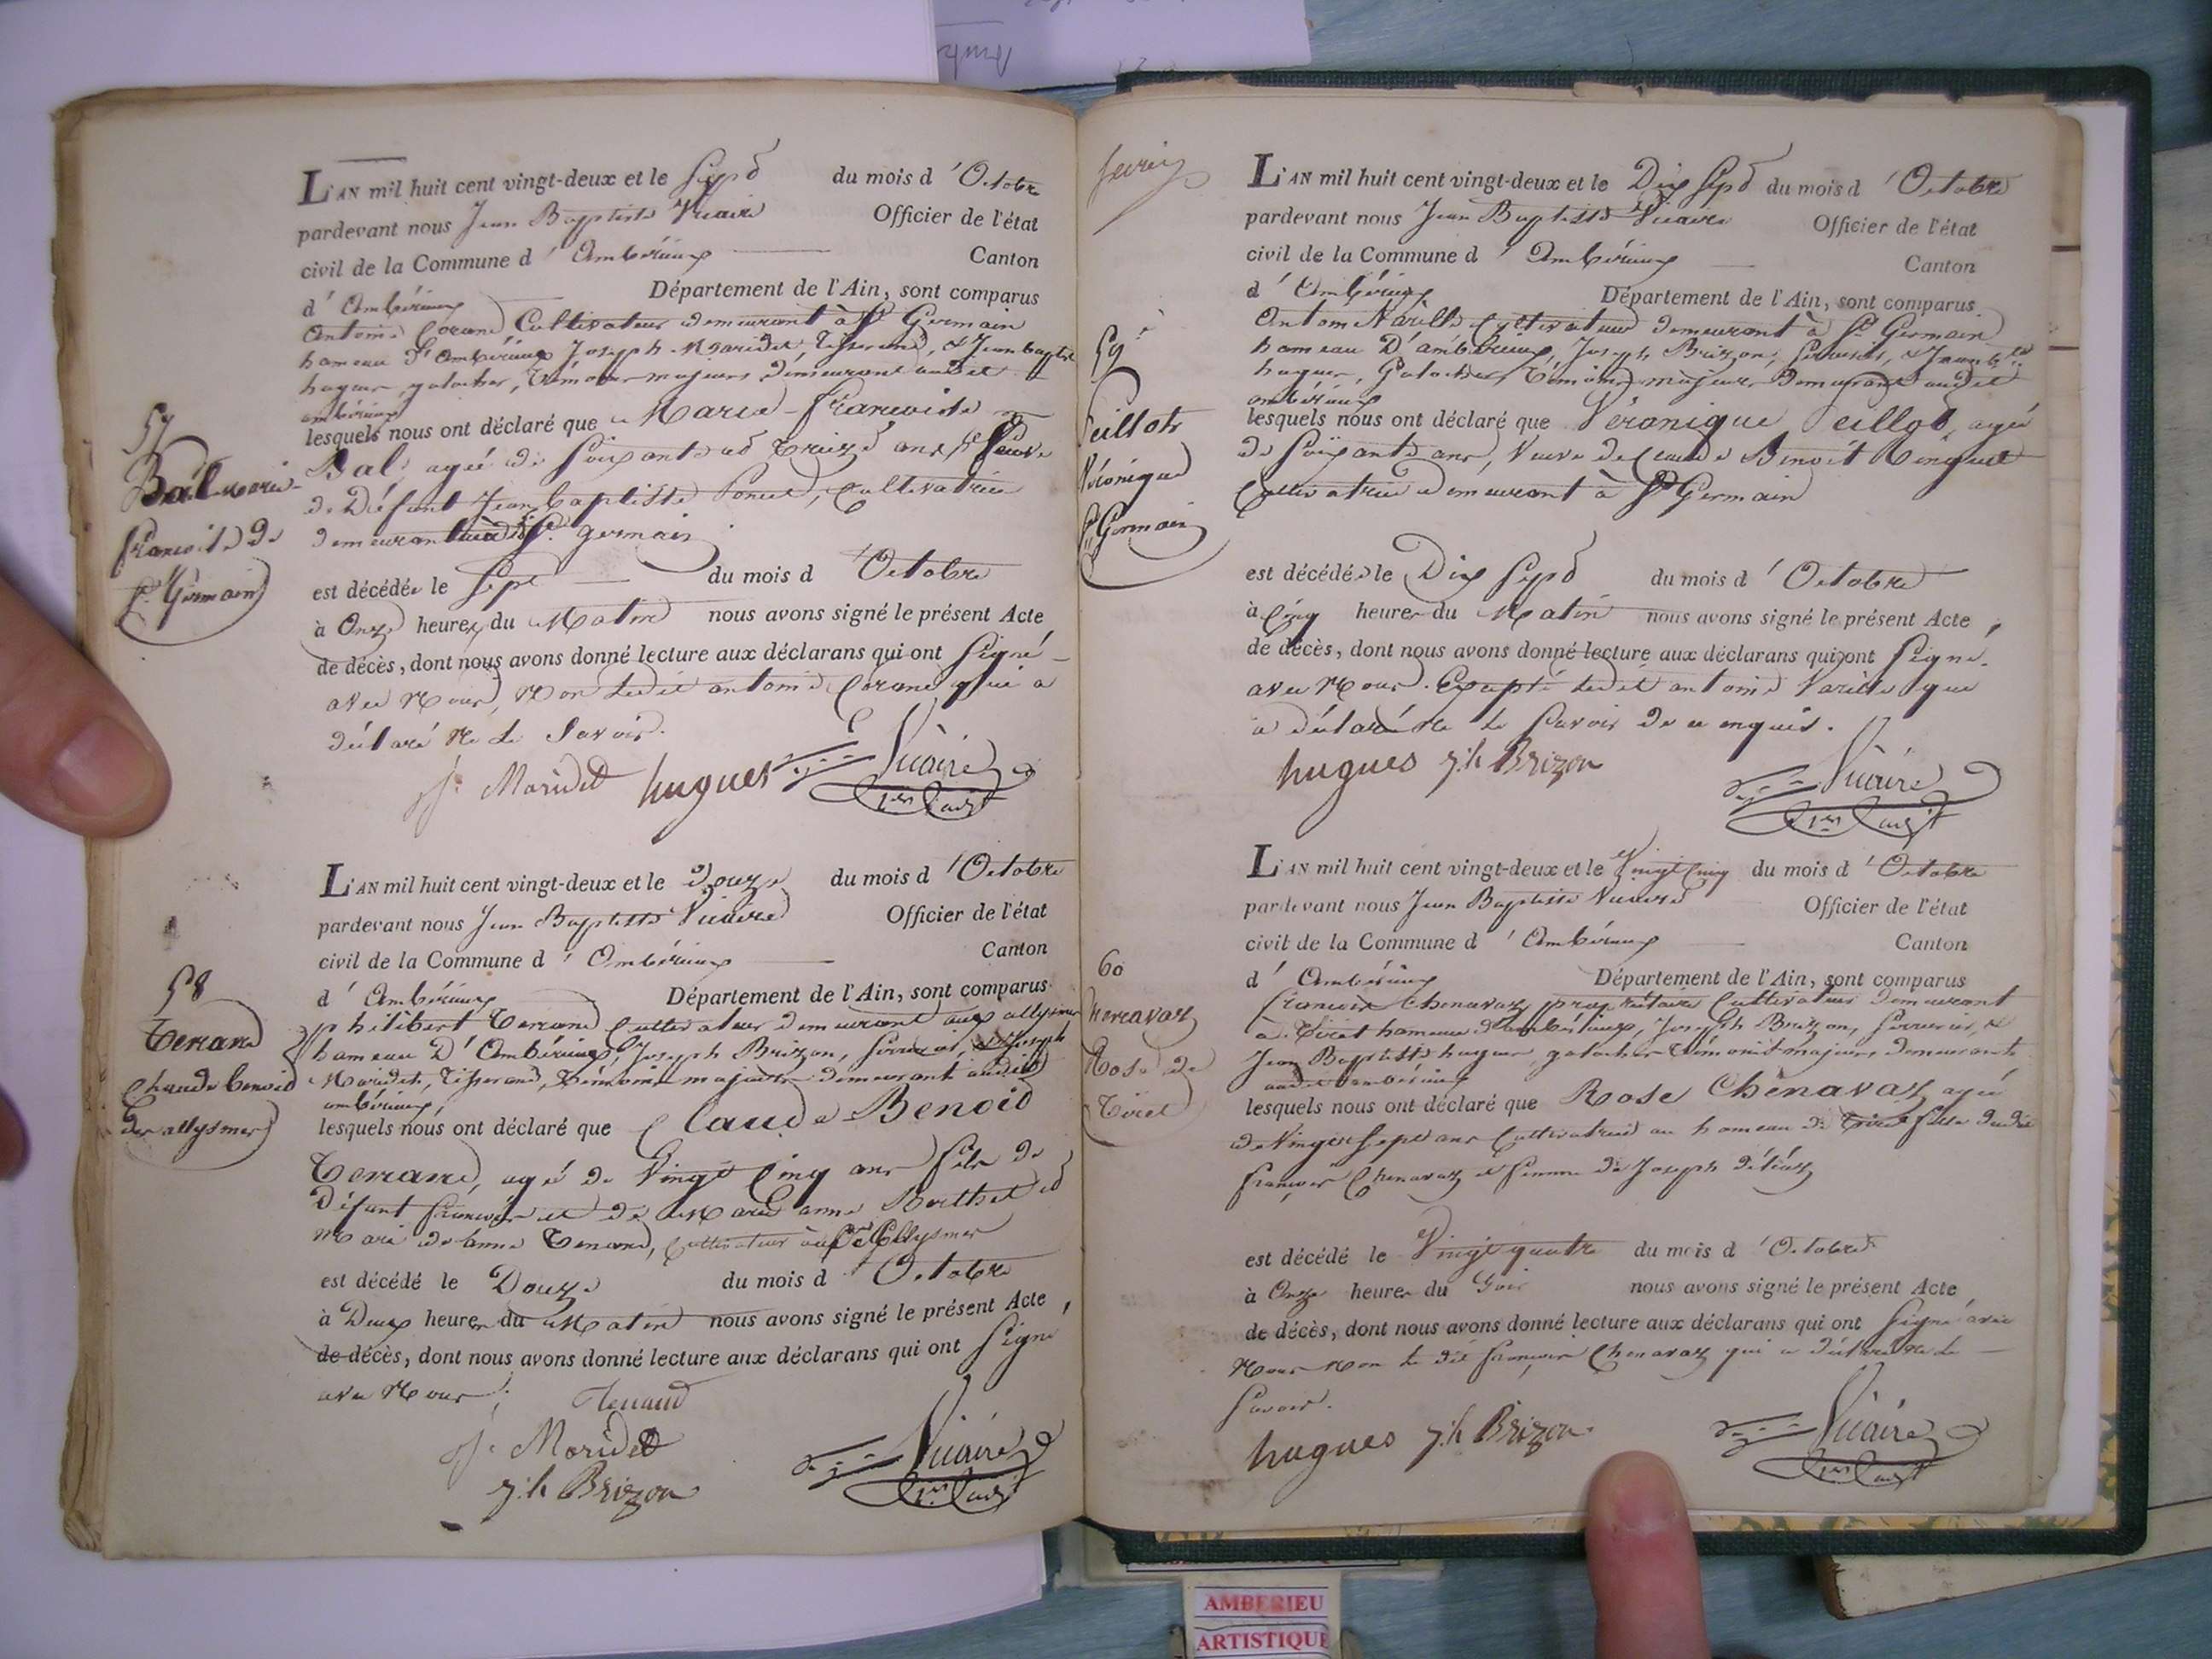 L'AN mil huit cent vingt-deux et le Sept du mois d'Octobre
pardevant nous Jean Baptiste Vicaire Officier de l'état
civil de la Commune d'Ambérieux Canton
d'Ambérieux Département de l'Ain, sont comparus
Antoine Cultivateur demeurant à St Germain
hameau d'Ambérieux Joseph Maridet, Tisserand, et Jean baptiste
hugues, galocher, témoins majeurs demeurant audit
ambérieux
lesquels nous ont déclaré que Marie-françoise
Bal agée de Soixante et Treize ans, Veuve
de Défunt Jean baptiste Poncet, Cultivatrice
demeurant à St germain
est décédée le Sept du mois d'Octobre
à Onze heures du Matin nous avons signé le présent Acte
de décès, dont nous avons donné lecture aux déclarans qui ont Signé
avec Nous, Non ledit antoine qui a
déclaré Ne le Savoir.
Jh Maridet hugues Vicaire
57
Bal marie
françoise de
St Germain
L'AN mil huit cent vingt-deux et le Douze du mois d'Octobre
pardevant nous Jean Baptiste Vicaire Officier de l'état
civil de la Commune d'Ambérieux Canton
d'Ambérieux Département de l'Ain, sont comparus
philibert Tenand Cultivateur demeurant aux allysmes
hameau D'Ambérieux, Joseph Brizon, Serrurier, et Joseph
Maridet, Tisserand, témoins majeurs demeurant audit
ambérieux,
lesquels nous ont déclaré que Claude Benoid
Tenand, agé de Vingt Cinq ans fils de
Défunt françois et de Marie anne Berthet et
Mari de anne Tenand, Cultivateur Allysmes
est décédé le Douze du mois d'Octobre
à Deux heures du Matin nous avons signé le présent Acte
de décès, dont nous avons donné lecture aux déclarans qui ont Signé
avec Nous, Tenand
Jh Maridet
jh Brizon Vicaire
58
Tenand
Claude benoid
des allysmes
L'AN mil huit cent vingt-deux et le Dix Sept du mois d'Octobre
pardevant nous Jean Baptiste Vicaire Officier de l'état
civil de la Commune d'Ambérieux Canton
d'Ambérieux Département de l'Ain, sont comparus
Antoine Varille Cultivateur demeurant à St Germain
hameau D'ambérieux, Joseph Brizon, Serrurier, et Jean bte
hugues, Galocher, témoins majeurs Demeurant audit
ambérieux
lesquels nous ont déclaré que Véronique Peillot, agée
de Soixante ans, Veuve de Claude Benoit
Cultivatrice demeurant à St Germain
est décédée le Dix Sept du mois d'Octobre
à Cinq heures du Matin nous avons signé le présent Acte
de décès, dont nous avons donné lecture aux déclarans qui ont Signé
avec Nous. Excepté ledit antoine Varille que
a déclaré Ne le Savoir de ce enquis.
hugues jh Brizon Vicaire
59
Peillot
Véronique
St Germain
L'AN mil huit cent vingt-deux et le Vingt Cinq du mois d'Octobre
pardevant nous Jean Baptiste Vicaire Officier de l'état
civil de la Commune d'Ambérieux Canton
d'Ambérieux Département de l'Ain, sont comparus
françois Chenavaz propriétaire Cultivateur demeurant
à Tiret hameau d'ambérieux, Joseph Brizon, Serrurier, et
Jean Baptiste hugues, galocher témoins majeurs demeurants
audit ambérieux
lesquels nous ont déclaré que Rose Chenavaz agée
de Vingt Sept ans Cultivatrice au hameau de Tiret fille dudit
françois Chenavaz et femme de Joseph
est décédé le Vingt quatre du mois d'Octobre
à Onze heures du Soir nous avons signé le présent Acte
de décès, dont nous avons donné lecture aux déclarans qui ont Signé avec
Nous Non le dit françois Chenavaz qui a déclaré Ne le
Savoir.
hugues jh Brizon Vicaire
60
Chenavaz
Rose de
Tiret
AMBERIEU
ARTISTIQUE